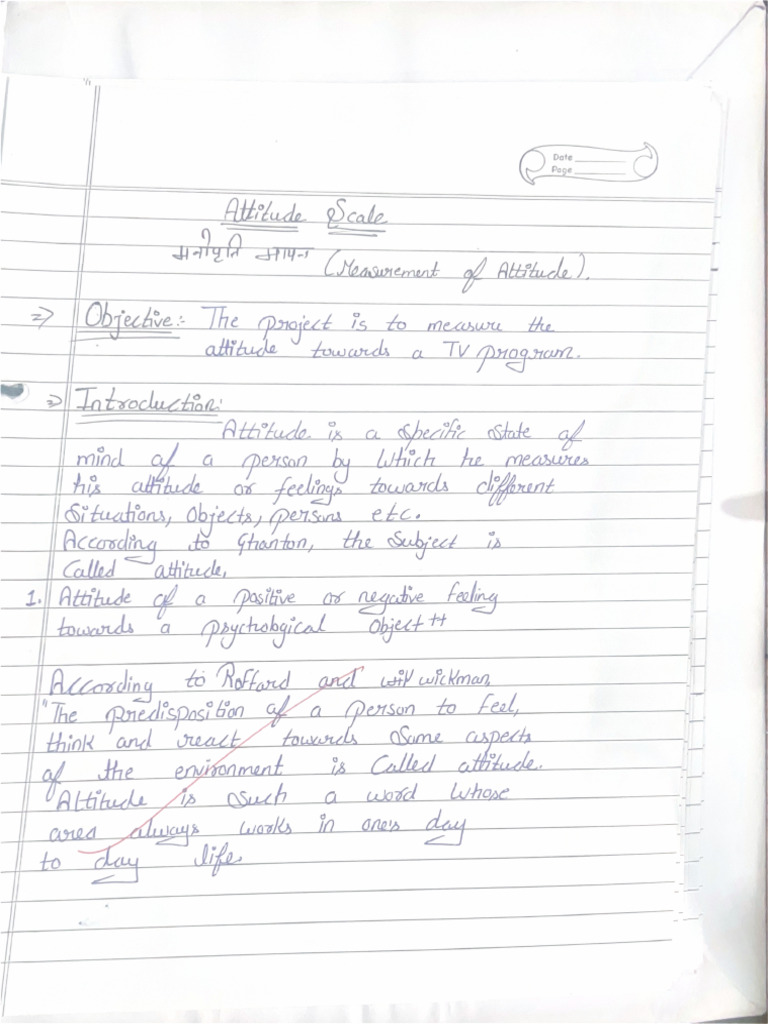 Date
Page
Attitude Scale
मनोवृति मापन (Measurement of Attitude).
⇒ Objective:- The project is to measure the
attitude towards a TV program.
⇒ Introduction:
Attitude is a specific state of
mind of a person by which he measures
his attitude or feelings towards different
Situations, Objects, persons etc.
According to Ghanton, the Subject is
Called attitude,
1. Attitude of a positive or negative feeling
towards a psychological Object"
According to Roffard and wickman,
"The predisposition of a person to feel,
think and react towards Some aspects
of the environment is Called attitude.
Attitude is Such a word whose
area always works in one's day
to day life